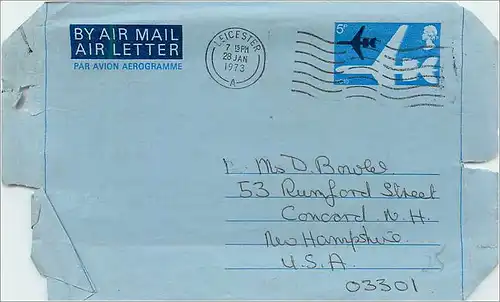 BY AIR MAIL
AIR LETTER
PAR AVION AEROGRAMME
LEICESTER
7 15 PM
28 JAN
1973
A
5P
Ms D. Bowles
53 Rumford Street
Concord N.H.
New Hampshire
U.S.A
03301